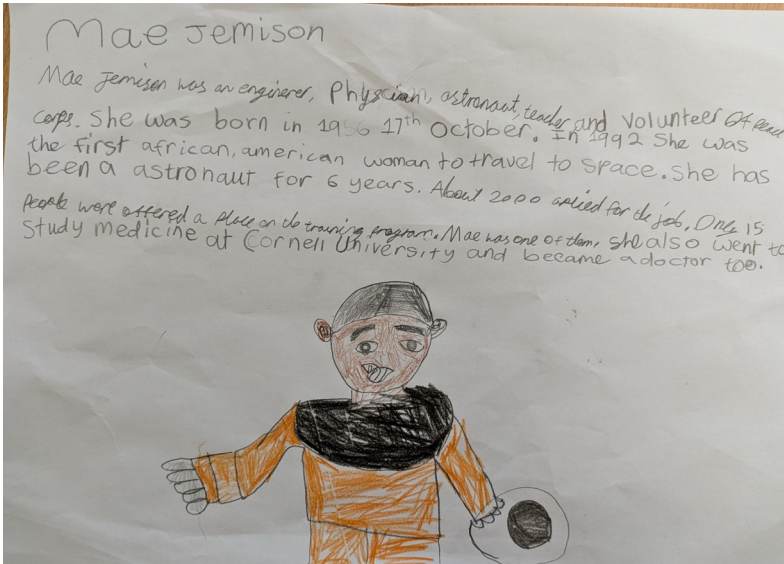 Mae Jemison
Mae Jemison was an enginerer, Physcian, astronaut, teacher and volunteer Of peace
corps. She was born in 1956 17th October. In 1992 She was
the first african, american woman to travel to space. She has
been a astronaut for 6 years. About 2000 aplied for the job, Only 15
People were offered a place on the training program. Mae was one of them. she also went to
study medicine at Cornell University and became a doctor too.